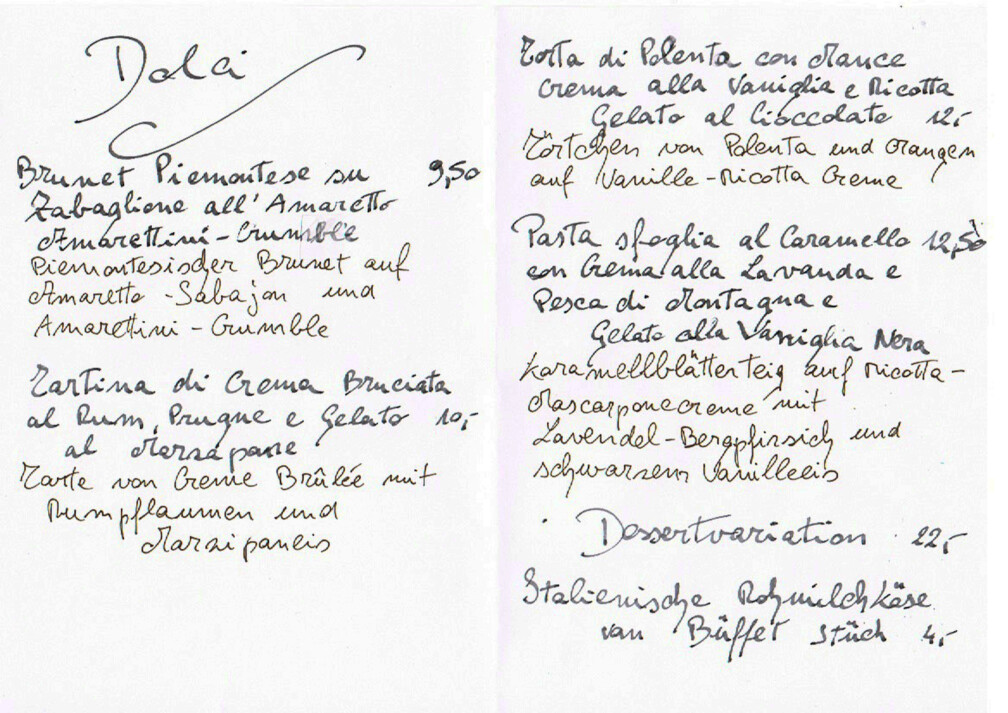 Dolci
Brunet Piemontese su 9,50
Zabaglione all'Amaretto
Amarettini-Crumble
Piemontesischer Brunet auf
Amaretto-Sabajon und
Amarettini-Crumble
Tartina di Crema Bruciata
al Rum, Prugne e Gelato 10,-
al Marzapane
Tarte von Creme Brûlée mit
Rumpflaumen und
Marzipaneis
Torta di Polenta con Arance
Crema alla Vaniglia e Ricotta
Gelato al Cioccolate 12,-
Törtchen von Polenta und Orangen
auf Vanille-Ricotta Creme
Pasta sfoglia al Caramello 12,50
con Crema alla Lavanda e
Pesca di Montagna e
Gelato alla Vaniglia Nera
Karamellblätterteig auf Ricotta-
Mascarponecreme mit
Lavendel-Bergpfirsich und
schwarzem Vanilleeis
Dessertvariation 22,-
Italienische Rohmilchkäse
van Büffet Stück 4,-